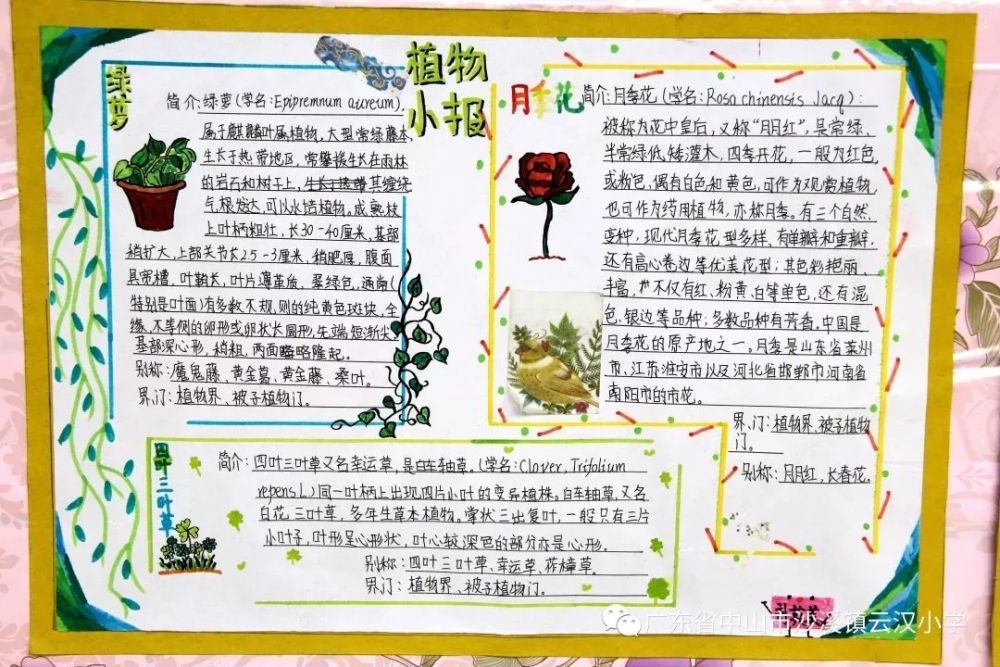 植物
小报
绿萝
简介:绿萝(学名:Epipremnum aureum),
属于麒麟叶属植物,大型常绿藤本,
生长于热带地区,常攀援生长在雨林
的岩石和树干上,其缠绕
气根发达,可以水培植物。成熟枝
上叶柄粗壮,长30-40厘米,基部
稍扩大,上部关节长2.5-3厘米,稍肥厚,腹面
具宽槽,叶鞘长,叶片薄革质,翠绿色,通常(
特别是叶面)有多数不规则的纯黄色斑块,全
缘,不等侧的卵形或卵状长圆形,先端短渐尖,
基部深心形,稍粗,两面略隆起。
别称:魔鬼藤、黄金葛、黄金藤、桑叶。
界门:植物界、被子植物门。
月季花
简介:月季花(学名:Rosa chinensis Jacq):
被称为花中皇后,又称“月月红”,是常绿、
半常绿低矮灌木,四季开花,一般为红色,
或粉色,偶有白色和黄色,可作为观赏植物,
也可作为药用植物,亦称月季。有三个自然
变种,现代月季花型多样,有单瓣和重瓣,
还有高心卷边等优美花型;其色彩艳丽、
丰富,不仅有红、粉黄、白等单色,还有混
色、银边等品种;多数品种有芳香,中国是
月季花的原产地之一。月季是山东省莱州
市、江苏淮安市以及河北省邯郸市河南省
南阳市的市花。
界、门:植物界、被子植物
门。
别称:月月红,长春花。
四叶三叶草
简介:四叶三叶草又名幸运草,是白车轴草。(学名:Clover, Trifolium
repens L)同一叶柄上出现四片小叶的变异植株。白车轴草又名
白花三叶草,多年生草本植物。掌状三出复叶,一般只有三片
小叶子,叶形呈心形状,叶心较深色的部分亦是心形。
别称:四叶三叶草、幸运草、苜蓿草。
界门:植物界、被子植物门。
广东省中山市沙溪镇云汉小学